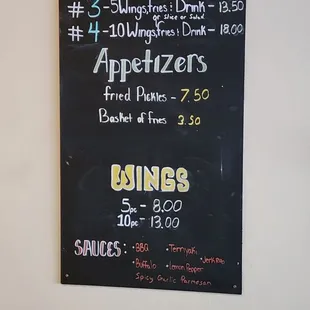 #3-5Wings,fries & Drink - 13.50
or Slice or Salad
#4-10Wings,fries & Drink - 18.00
Appetizers
fried Pickles - 7.50
Basket of fries 3.50
WINGS
5pc - 8.00
10pc - 13.00
SAUCES: • BBQ • Terriyaki
• Buffalo • Lemon Pepper • Jerk BBQ
Spicy Garlic Parmesan